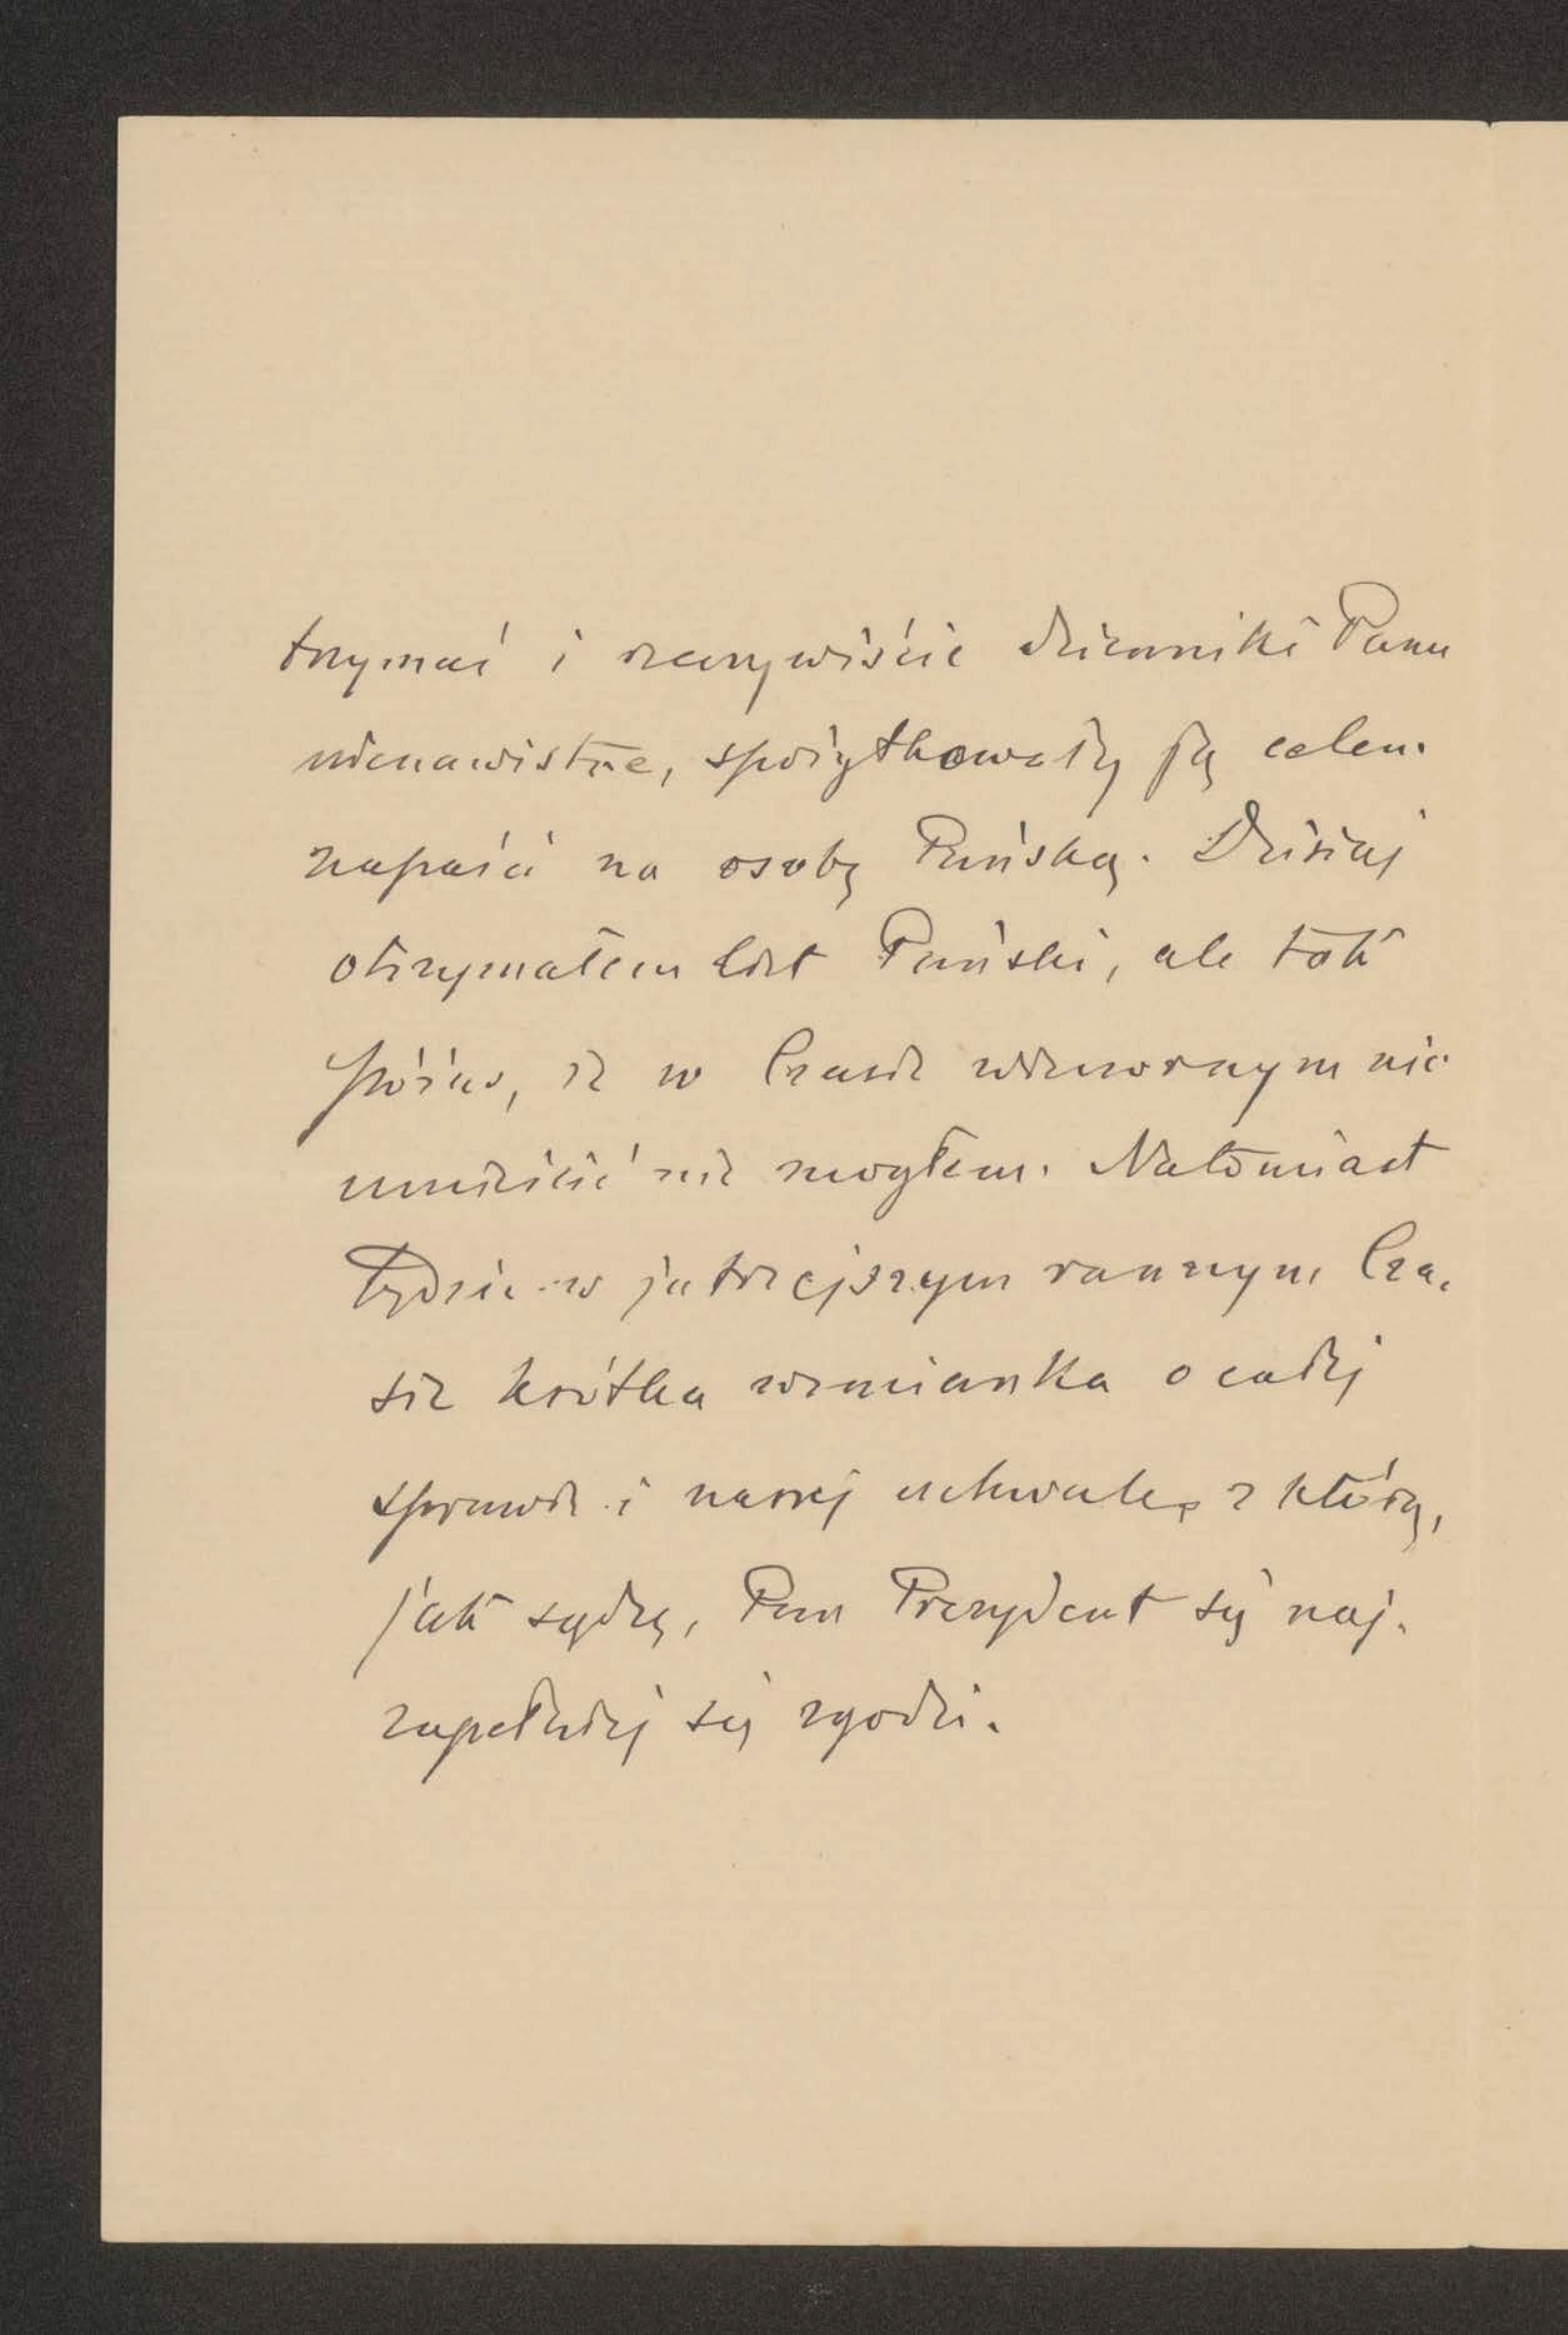 trzymać i rzeczywiście dzienniki Panu
nienawistne, spożytkowały ją celem
napaści na osobę Pańską. Dzisiaj
otrzymałem list Pański, ale tak
późno, że w Czasie wieczornym nic
umieścić nie mogłem. Natomiast
będzie w jutrzejszym rannym Cza-
sie krótka wzmianka o całej
sprawie i naszej uchwale, z którą,
jak sądzę, Pan Prezydent się naj-
zupełniej się zgodzi.